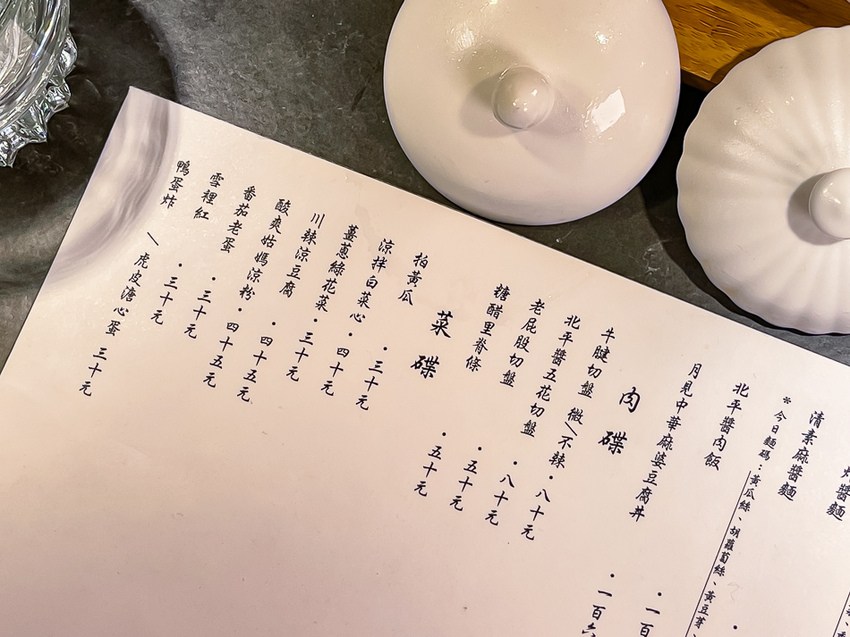 醬麵
清素麻醬麵
*今日麵碼：黃瓜絲、胡蘿蔔絲、黃豆芽、
北平醬肉飯 ·一百
月見中華麻婆豆腐丼 ·一百六
肉碟
牛腱切盤 微\不辣·八十元
北平醬五花切盤 ·八十元
老屁股切盤 ·五十元
糖醋里脊條 ·五十元
菜碟
拍黃瓜 ·三十元
涼拌白菜心 ·四十元
薑蔥綠花菜·三十元
川辣涼豆腐 ·四十五元
酸爽姑媽涼粉·四十五元
番茄老蛋 ·三十元
雪裡紅 ·三十元
鴨蛋炸\虎皮溏心蛋 三十元